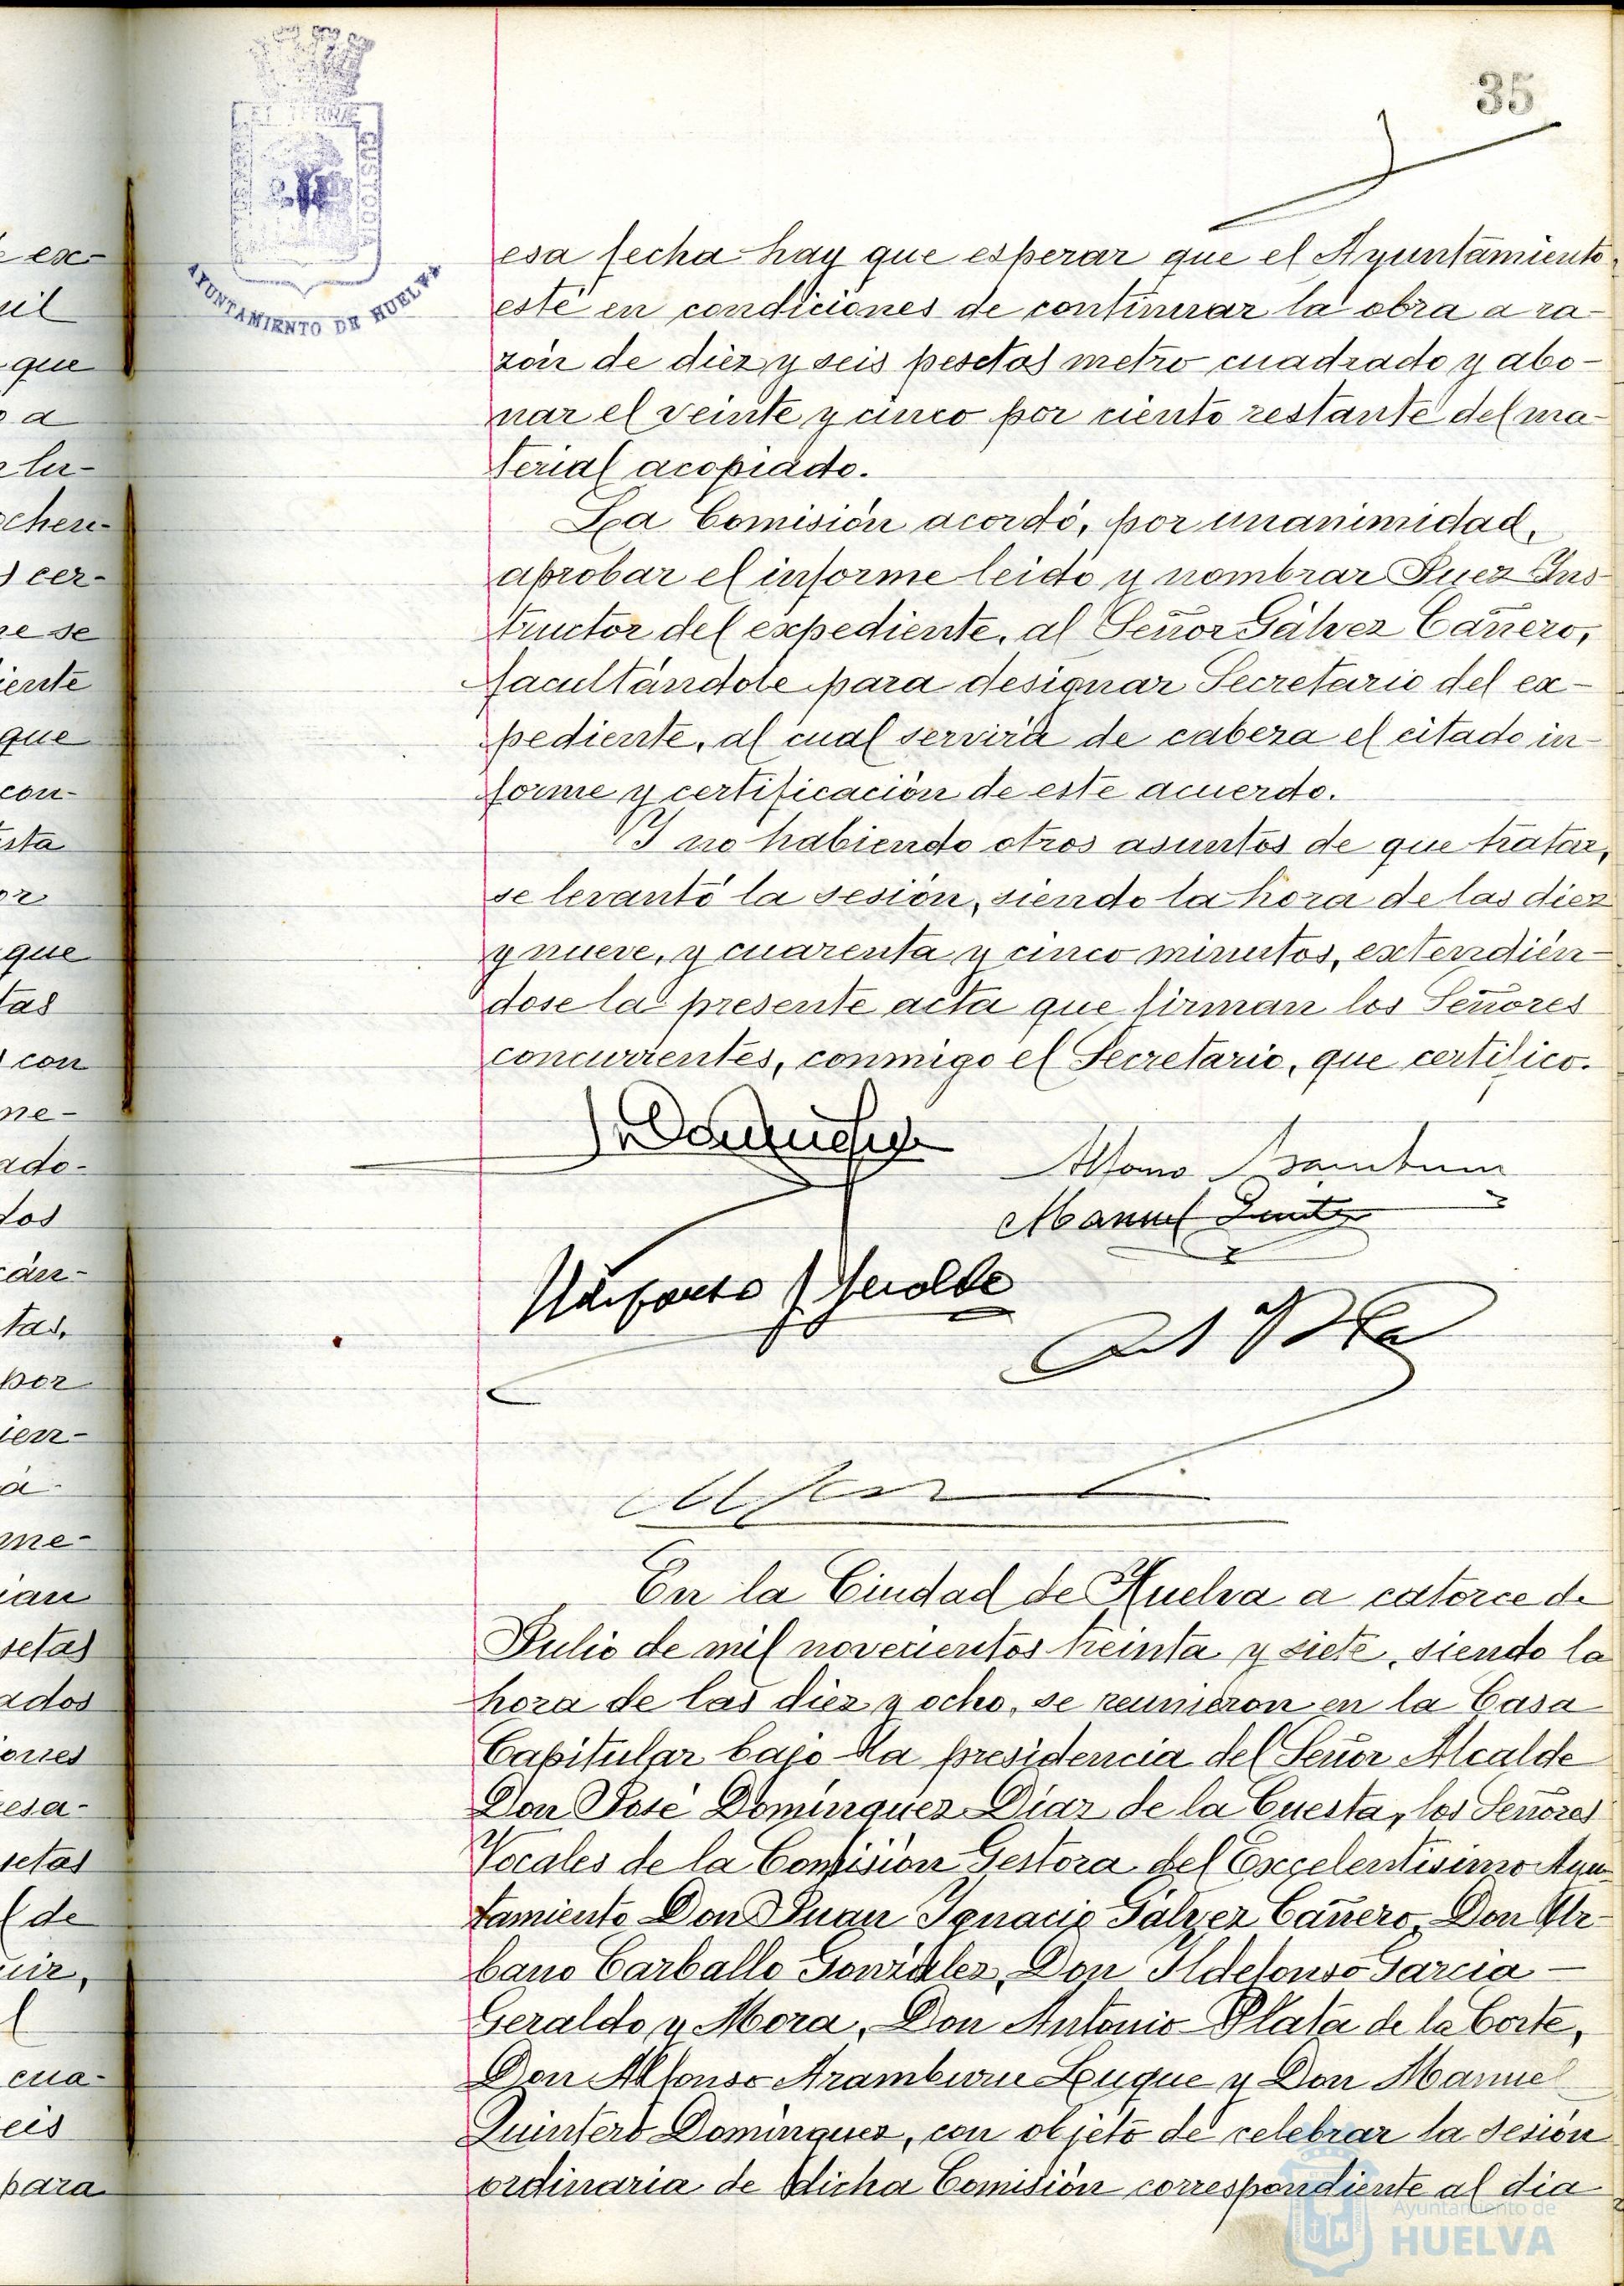 35
PORTUS MARIS
ET TERRAE
CUSTODIA
AYUNTAMIENTO DE HUELVA
esa fecha hay que esperar que el Ayuntamiento
esté en condiciones de continuar la obra a ra-
zón de diez y seis pesetas metro cuadrado y abo-
nar el veinte y cinco por ciento restante del ma-
terial acopiado.
La Comisión acordó, por unanimidad,
aprobar el informe leido y nombrar Juez Ins-
tructor del expediente, al Señor Gálvez Cañero,
facultándole para designar Secretario del ex-
pediente, al cual servirá de cabeza el citado in-
forme y certificación de este acuerdo.
Y no habiendo otros asuntos de que tratar,
se levantó la sesión, siendo la hora de las diez
y nueve, y cuarenta y cinco minutos, extendién-
dose la presente acta que firman los Señores
concurrentes, conmigo el Secretario, que certifico.
Alfonso Aramburu
Manuel Quintero
En la Ciudad de Huelva a catorce de
Julio de mil novecientos treinta y siete, siendo la
hora de las diez y ocho, se reunieron en la Casa
Capitular bajo la presidencia del Señor Alcalde
Don José Domínguez Díaz de la Cuesta, los Señores
Vocales de la Comisión Gestora del Excelentísimo Ayun-
tamiento Don Juan Ignacio Gálvez Cañero, Don Ur-
bano Carballo González, Don Ildefonso García-
Geraldo y Mora, Don Antonio Plata de la Corte,
Don Alfonso Aramburu Luque y Don Manuel
Quintero Domínguez, con objeto de celebrar la sesión
ordinaria de dicha Comisión correspondiente al día
Ayuntamiento de
HUELVA
ex-
que
a
cer-
se
que
con-
que
con
me-
por
me-
de
cua-
para